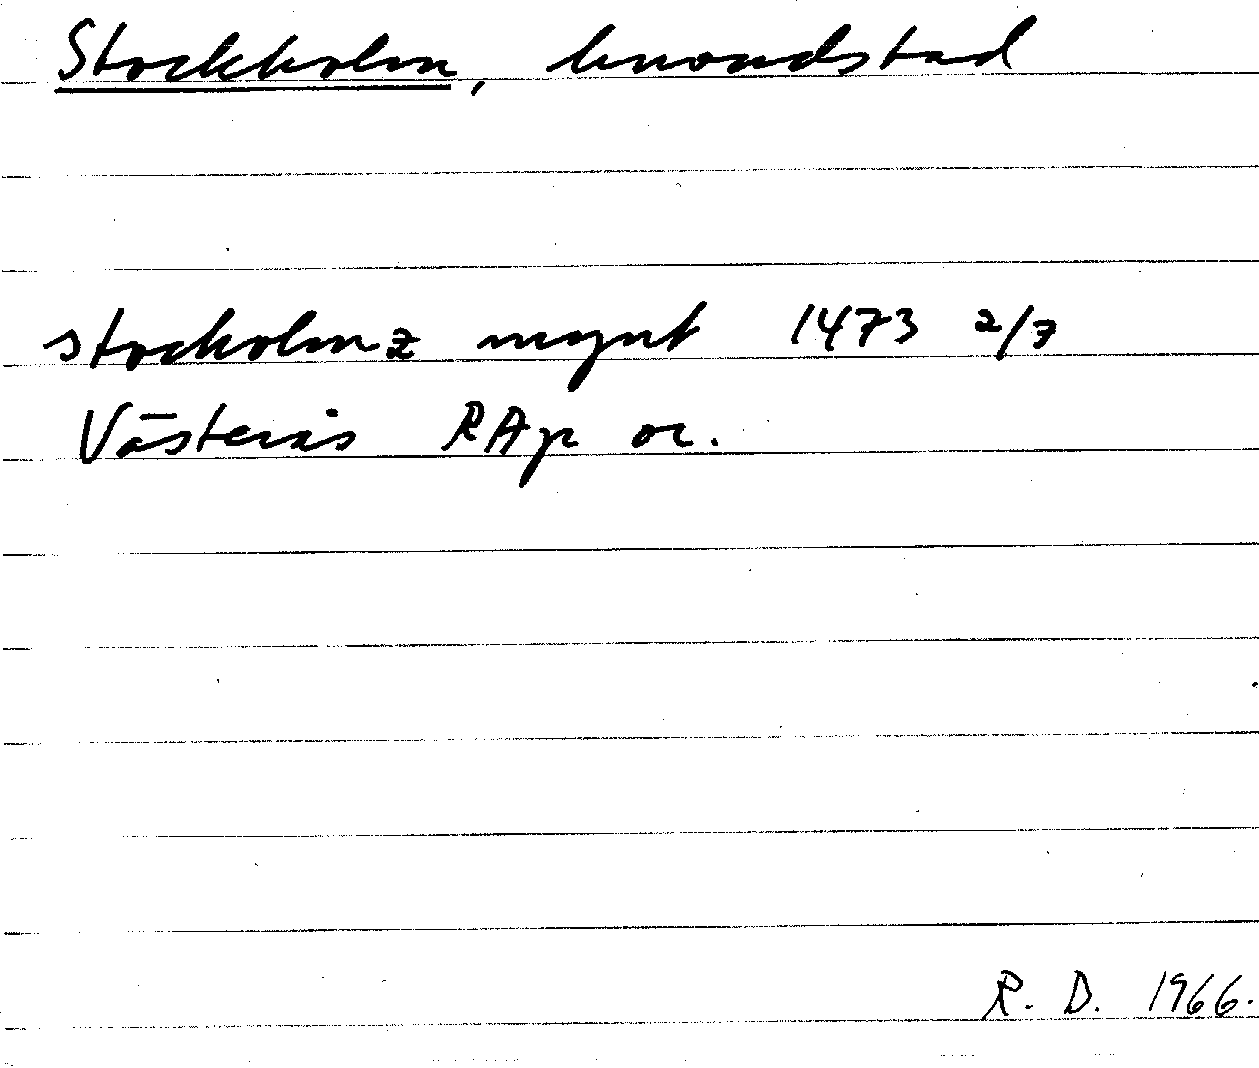 Stockholm, huvudstad
stocholmz mynt 1473 2/7
Västerås RAp or.
R. D. 1966.